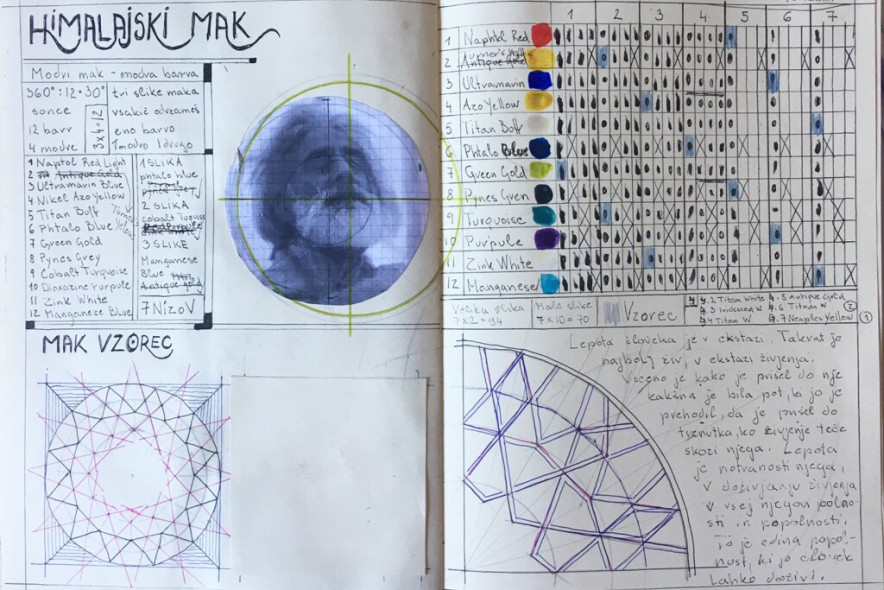 HIMALAJSKI MAK
Modri mak - modra barva
360° : 12 = 30° tri slike maka
sonce vsakič odvzameš
12 barv eno barvo
4 modre 3x4=12 1modro 1drugo
1 Naptol Red Light
2 Antique Gold
3 Ultramarin Blue
4 Nikel Azo Yellow
5 Titan Buff
6 Phtalo Blue
7 Green Gold
8 Pynes Grey
9 Cobalt Turquoise
10 Dioxazine Purpule
11 Zink White
12 Manganece Blue
1 SLIKA
phtalo blue
2 SLIKA
cobalt Turquoise
3 SLIKE
Manganese
Blue
Antique gold
7 NIZOV
MAK VZOREC
1 2 3 4 5 6 7
1 Naphtol Red
2 Antique Gold
3 Ultramarin
4 Azo Yellow
5 Titan Buff
6 Phtalo Blue
7 Green Gold
8 Pynes Gren
9 Turquoise
10 Purpule
11 Zink White
12 Manganese
Velika slika
7x2=
Male slike
7 x 10 = 70
Vzorec
4.2 Titan White 4.5 Antique Gold
4.3 4.6 Titan W 2
4 Titan W 4.7 Neaples Yellow 1
Lepota človeka je v ekstazi. Takrat je
najbolj živ, v ekstazi življenja.
Vseeno je kako je prišel do nje
kakšna je bila pot, ki jo je
prehodil, da je prišel do
trenutka, ko življenje teče
skozi njega. Lepota
je notranjosti njega,
v doživljanju življenja
v vsej njegovi polno
sti in popolnosti.
To je edina popol-
nost, ki jo človek
lahko doživi.